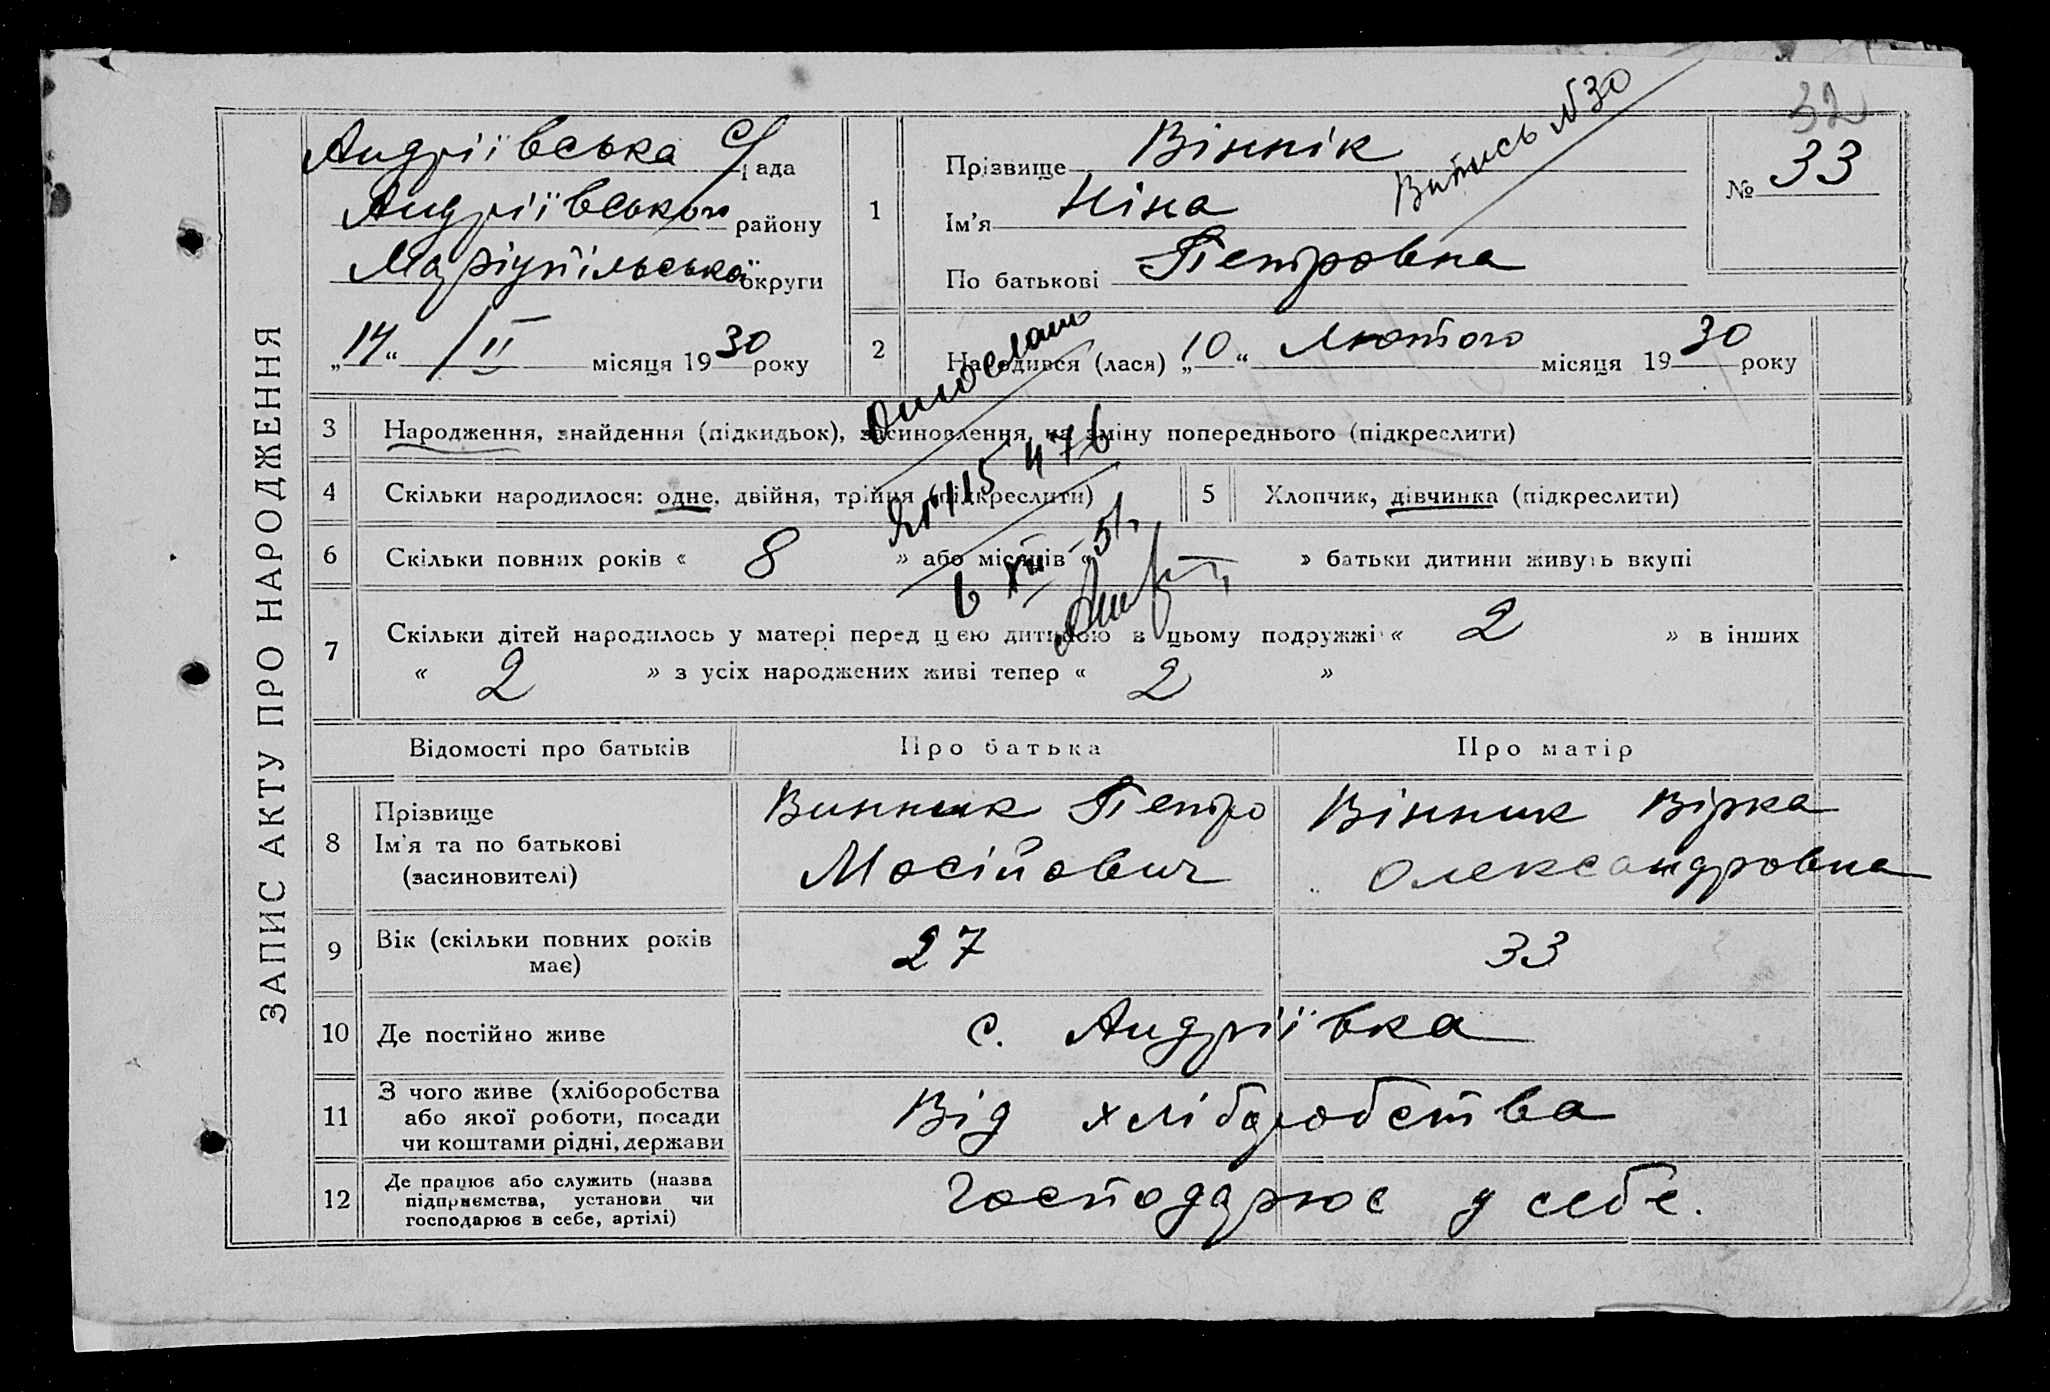 32
ЗАПИС АКТУ ПРО НАРОДЖЕННЯ
Андріївська С/рада
Андріївського району
Маріупільської округи
„14“ /II місяця 1930 року
1
Прізвище Віннік
Ім'я Ніна
По батькові Петровна
Витись №30
№ 33
2 Народився (лася) „10“ Лютого місяця 1930 року
3 Народження, знайдення (підкидьок), засиновлення, на зміну попереднього (підкреслити)
4 Скільки народилося: одне, двійня, трійня (підкреслити)
5 Хлопчик, дівчинка (підкреслити)
6 Скільки повних років « 8 » або місяців « — » батьки дитини живуть вкупі
7 Скільки дітей народилось у матері перед цією дитиною в цьому подружжі « 2 » в інших
« 2 » з усіх народжених живі тепер « 2 »
115476
6 XII 51г
Відомості про батьків Про батька Про матір
8 Прізвище
Ім'я та по батькові
(засиновителі)
Винник Петро
Мосіпович
Вінник Вірка
Олександровна
9 Вік (скільки повних років
має)
27 33
10 Де постійно живе с. Андріївка
11 З чого живе (хліборобства
або якої роботи, посади
чи коштами рідні, держави
Від хліборобства
12 Де працює або служить (назва
підприємства, установи чи
господарює в себе, артілі)
Господарює у себе.